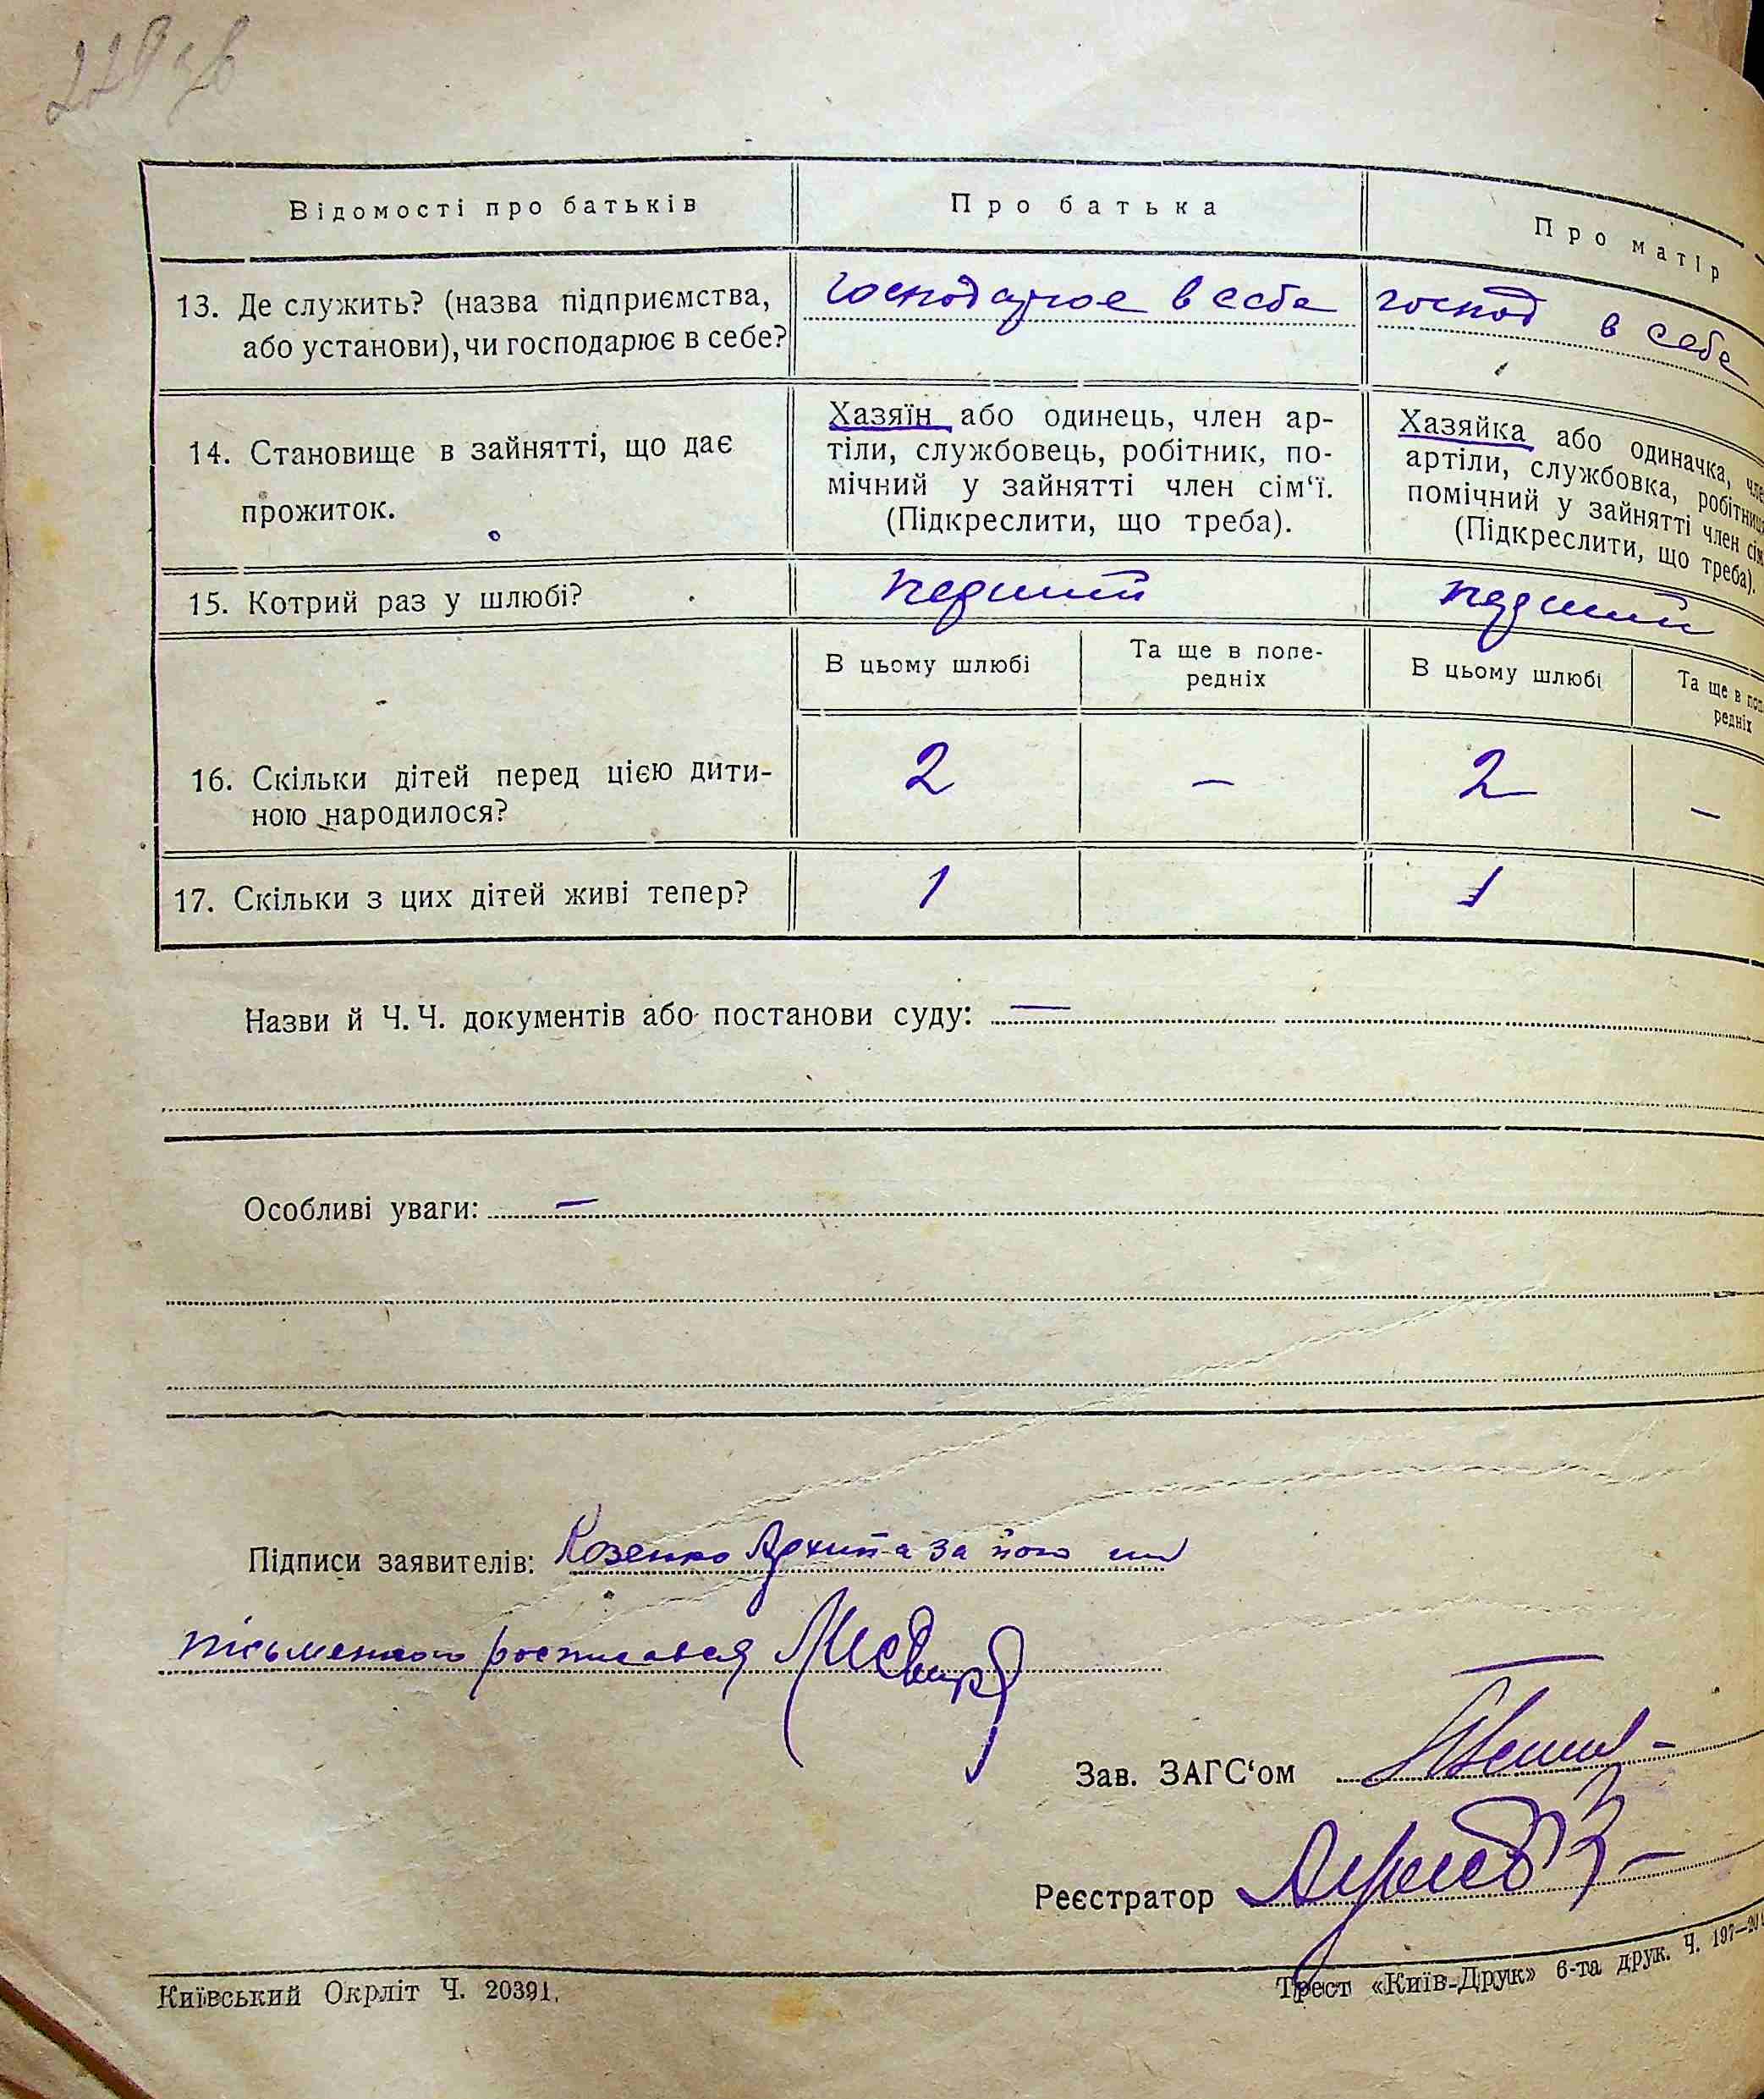 229 зв
Відомості про батьків
Про батька
Про матір
13. Де служить? (назва підприємства,
або установи), чи господарює в себе?
господарює в себе
господ в себе
14. Становище в зайнятті, що дає
прожиток.
Хазяїн або одинець, член ар-
тіли, службовець, робітник, по-
мічний у зайнятті член сім‘ї.
(Підкреслити, що треба).
Хазяйка або одиначка, чле
артіли, службовка, робітниц
помічний у зайнятті член сім
(Підкреслити, що треба).
15. Котрий раз у шлюбі?
перший
перший
В цьому шлюбі
Та ще в попе-
редніх
В цьому шлюбі
Та ще в поп
редніх
16. Скільки дітей перед цією дити-
ною народилося?
2
—
2
—
17. Скільки з цих дітей живі тепер?
1
1
Назви й Ч. Ч. документів або постанови суду: —
Особливі уваги: —
Підписи заявителів: Козенко Архипа за його не
письменного росписався
Зав. ЗАГС‘ом
Реєстратор
Київський Окрліт Ч. 20391.
Трест «Київ-Друк» 6-та друк. Ч. 197—